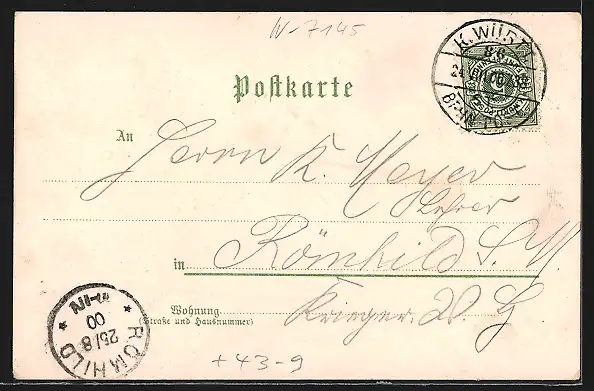 W-7145
K. WÜRT
Postkarte
An
Herrn K. Meyer
Lehrer
in Römhild S. M.
Wohnung
(Straße und Hausnummer)
Krieger.
RÖMHILD
25/8
00
+43-9